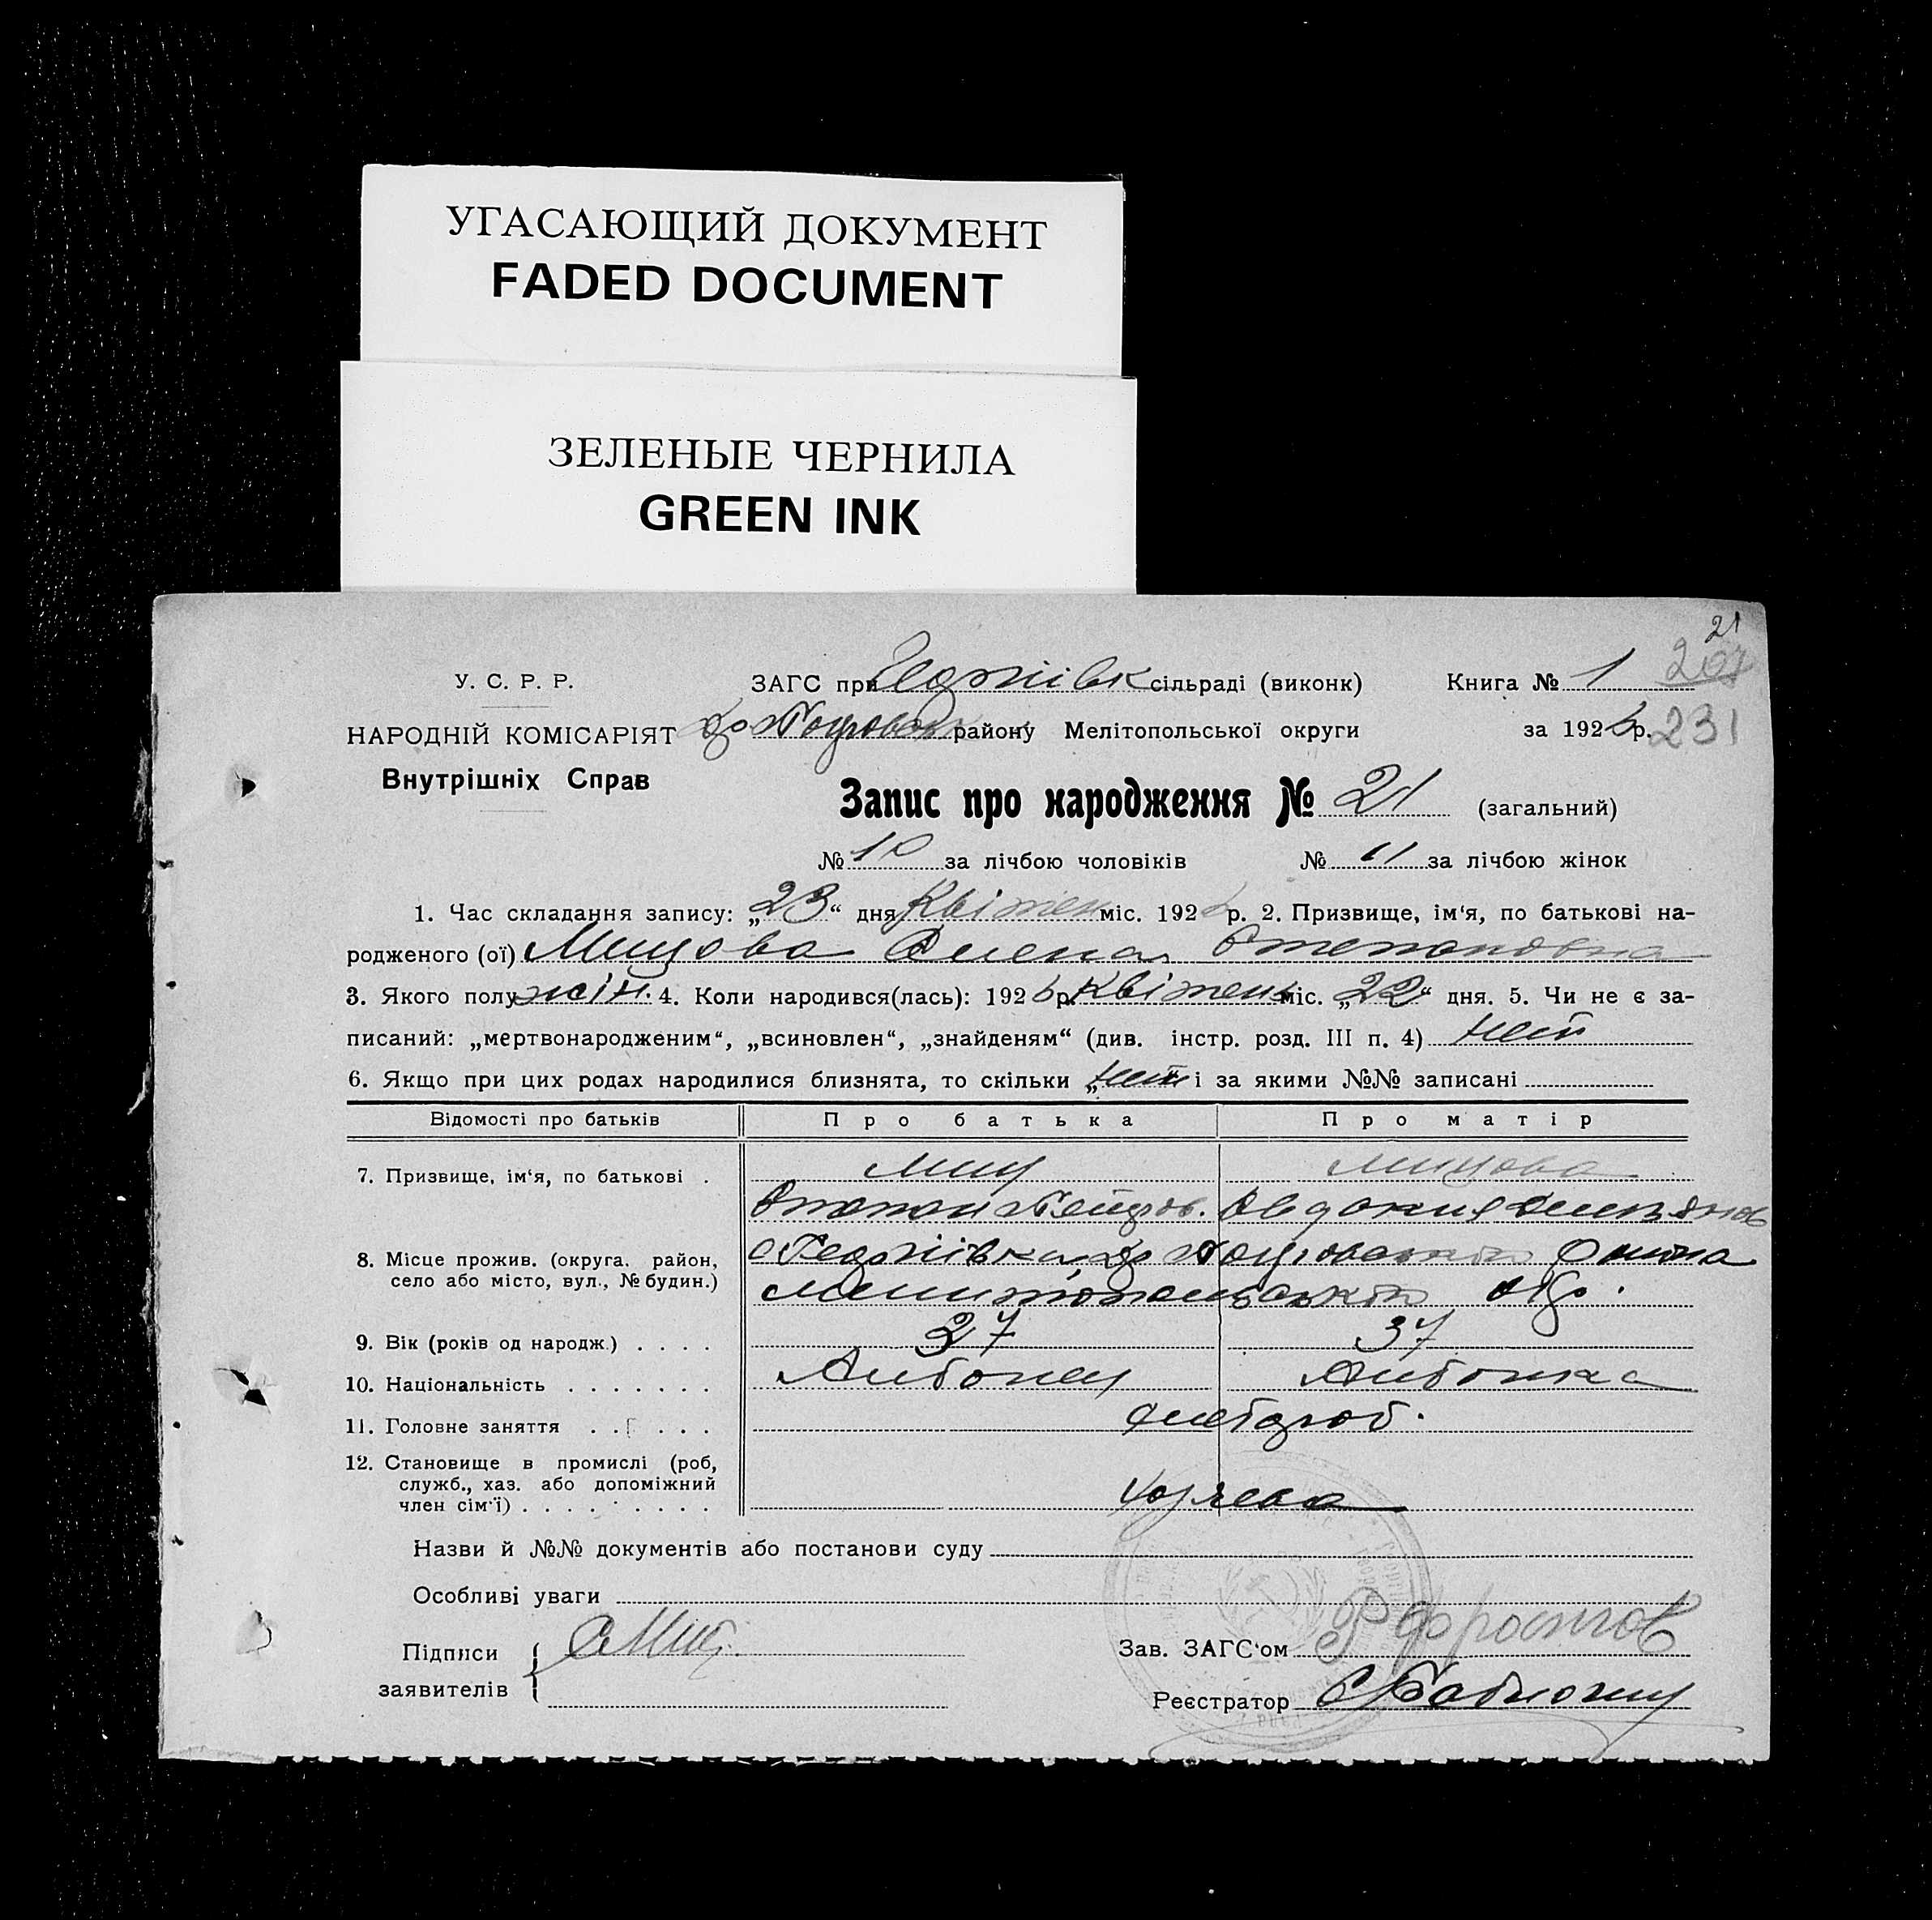 УГАСАЮЩИЙ ДОКУМЕНТ
FADED DOCUMENT
ЗЕЛЕНЫЕ ЧЕРНИЛА
GREEN INK
21
У. С. Р. Р. ЗАГС при Георгіївк сільраді (виконк) Книга № 1 207
НАРОДНІЙ КОМІСАРІЯТ району Мелітопольської округи за 192 р. 231
Внутрішніх Справ
Запис про народження № 21 (загальний)
№ 10 за лічбою чоловіків № 11 за лічбою жінок
1. Час складання запису: „23“ дня Квітен міс. 192 р. 2. Призвище, ім‘я, по батькові на-
родженого (ої) Мицова Олена Степановна
3. Якого полу жін. 4. Коли народився(лась): 192 р. Квітень міс. „22“ дня. 5. Чи не є за-
писаний: „мертвонародженим“, „всиновлен“, „знайденям“ (див. інстр. розд. III п. 4) нет
6. Якщо при цих родах народилися близнята, то скільки „нет і за якими №№ записані
Відомості про батьків Про батька Про матір
7. Призвище, ім‘я, по батькові . Миц Мицова
Степан Петров. Авдокия
8. Місце прожив. (округа, район, с Георгіївка
село або місто, вул., № будин.) Мелитопольської окр.
9. Вік (років од народж.) . . . . 37 37
10. Національність . . . . . . . Албонец Албонка
11. Головне заняття . . . . . . хлебороб.
12. Становище в промислі (роб,
служб., хаз. або допоміжний
член сім‘ї) . . . . . . . . . хозяева
Назви й №№ документів або постанови суду
Особливі уваги
Підписи СМиц. Зав. ЗАГС‘ом
заявителів Реєстратор